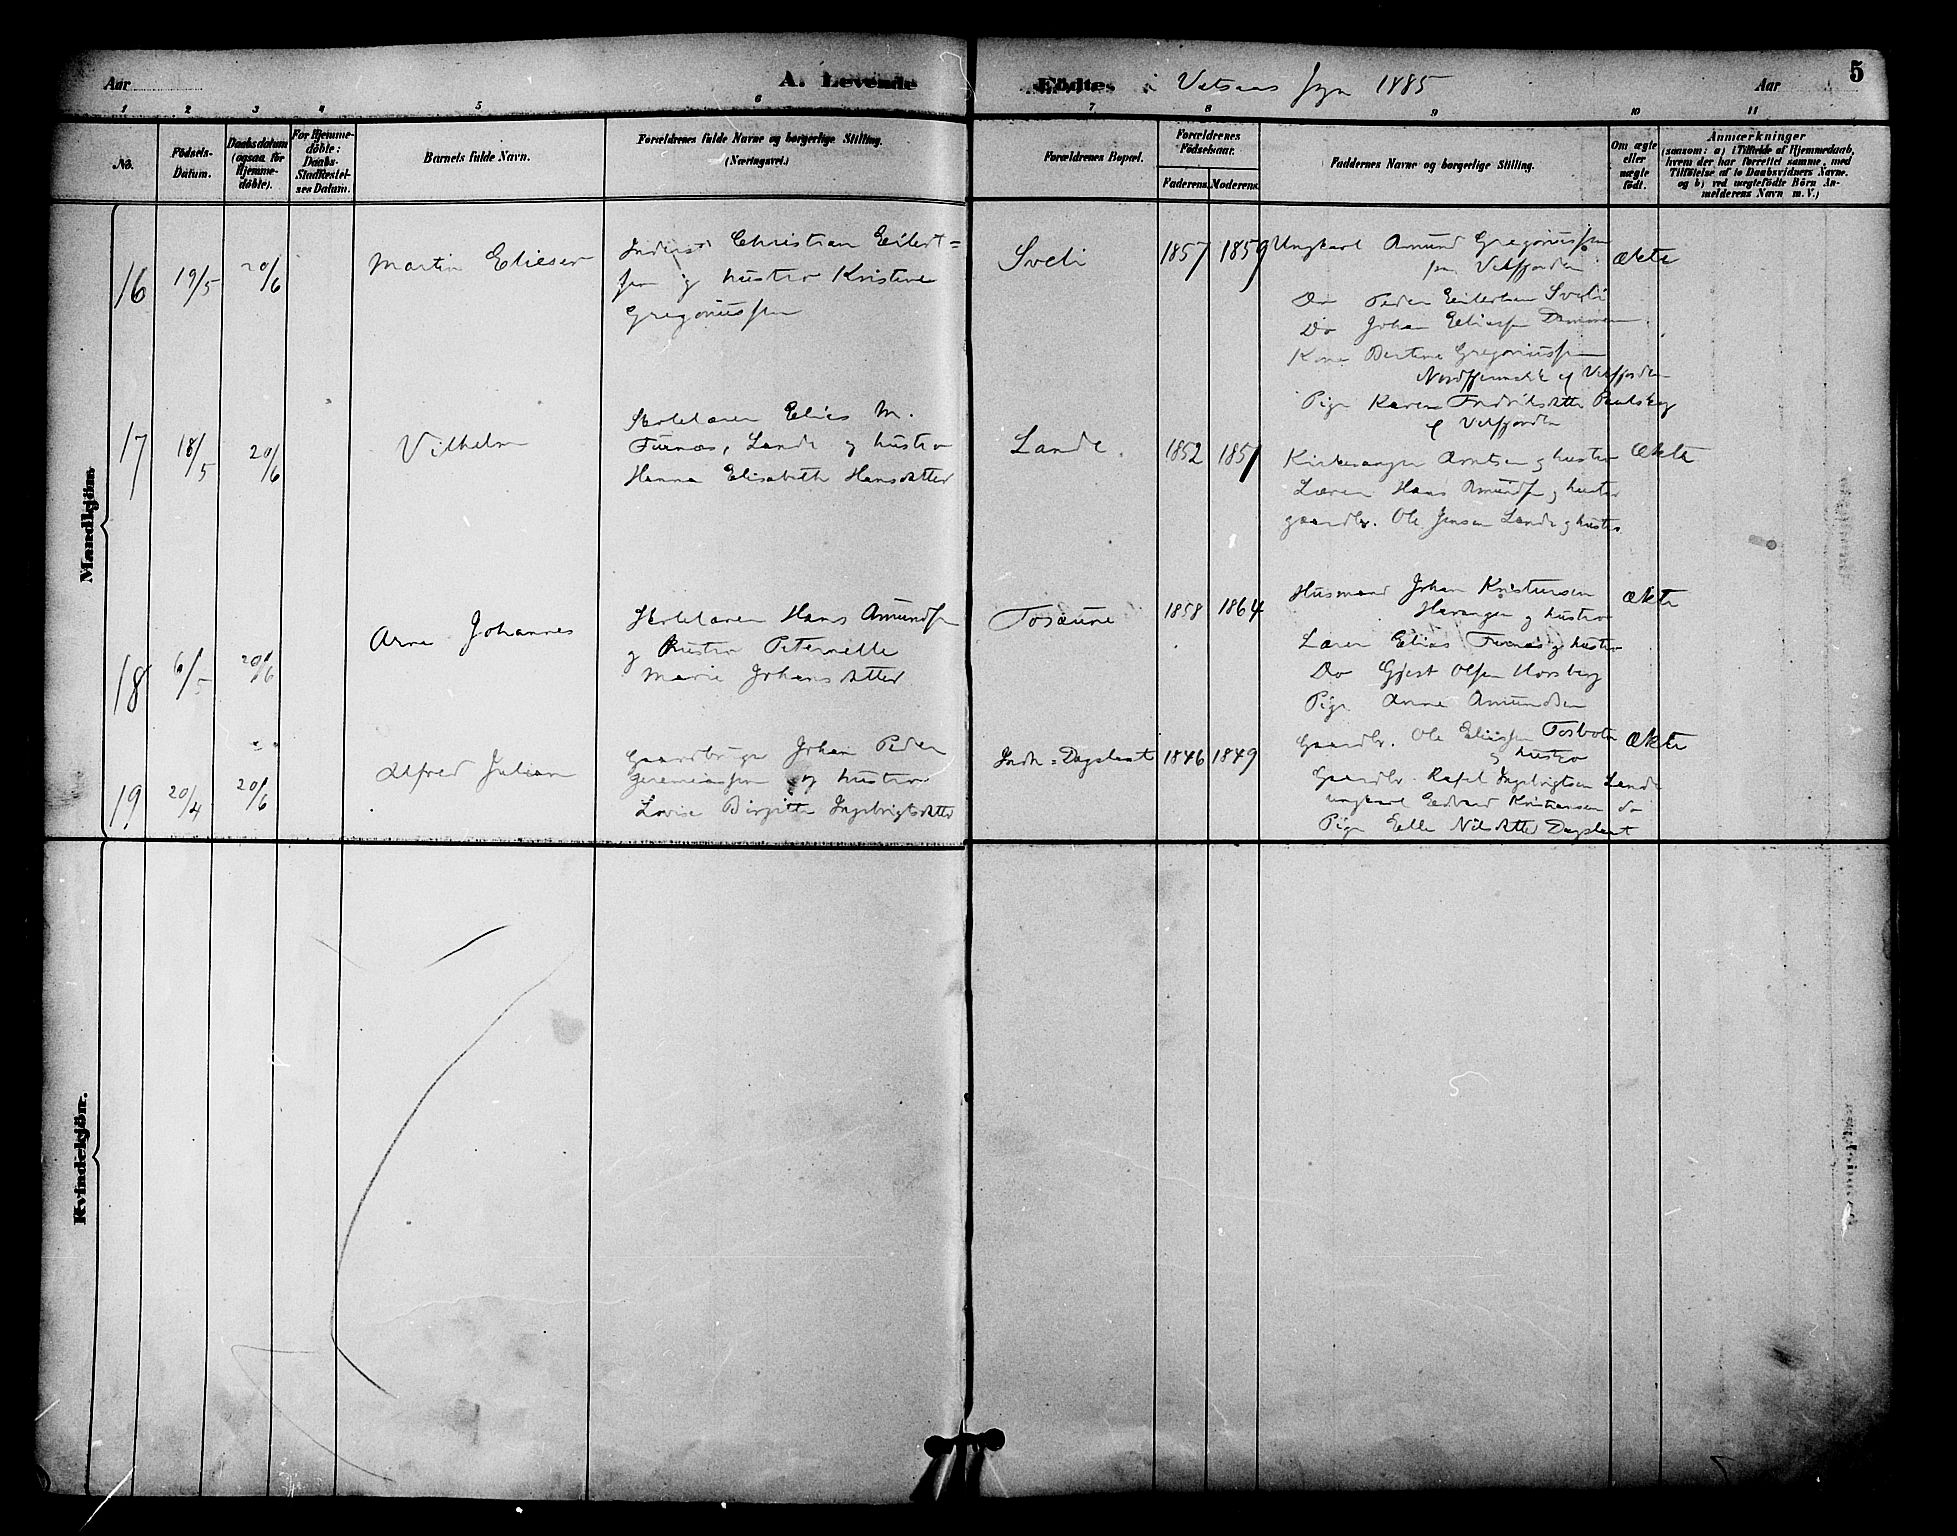 Aar
A. Levende
Födtes i Vetsaas Sogn 1885
Aar
5
1 2 3 4 5 6 7 8 9 10 11
No.
Födsels-
Datum.
Daabsdatum
(ogsaa för
Hjemme-
döbte).
For Hjemme-
döbte:
Daabs-
Stadfæstel-
ses Datum.
Barnets fulde Navn.
Forældrenes fulde Navne og borgerlige Stilling.
(Næringsvei.)
Forældrenes Bopæl.
Forældrenes
Födselsaar.
Faderens. Moderens.
Faddernes Navne og borgerlige Stilling.
Om ægte
eller
uægte
födt.
Anmærkninger
(saasom: a) i Tilfælde af Hjemmedaab,
hvem der har forrettet samme, med
Tilföielse af to Daabsvidners Navne.
og b) ved uægtefödte Börn An-
melderens Navn m. V.)
Mandkjön.
16 19/5 20/6
Martin Elieser
Inderst Christian Eilert=
sen og hustro Kristine
Gregoriussen
Sveli
1857 1859
Ungkarl Amund Gregoriussen
fra Velfjorden
Do Peder Eilertsen Sveli
Do Johan Eliassen
Kone Bertine Gregoriussen
af Velfjorden
Pige Karen Fredriksdatter
f Velfjorden
ækte
17 18/5 20/6
Vilhelm
Skolelærer Elias M.
Furnæs, Lande og hustro
Hanna Elisabeth Hansdatter
Lande.
1852 1851
Kirkesanger Arntsen og hustro
Lærer Hans Amundsen og hustro
gaardbr. Ole Jensen Lande og hustro
ækte
18 6/5 20/6
Arne Johannes
Skolelærer Hans Amundsen
og hustro Peternelle
Marie Johansdatter
Tosaune
1858 1864
Husmand Johan Kristiansen
Harangen og hustro
Lærer Elias Furnæs og hustro
Do Gjest Olsen Horsberg
Pige Anna Amundsen
ækte
19 20/4 20/6
Alfred Julian
Gaardbruger Johan Peder
Jeremiassen og hustro
Lovise Birgitte Ingebrigtsdatter
Indr=Dagslaat
1846 1849
Gaardbr. Ole Eliassen Tosbotn
og hustro
Gaardbr. Rafel Ingebrigtsen Lande
ungkarl Edvard Kristiansen do
Pige Elle Nilsdatter Dagslaat
ækte
Kvindekjön.